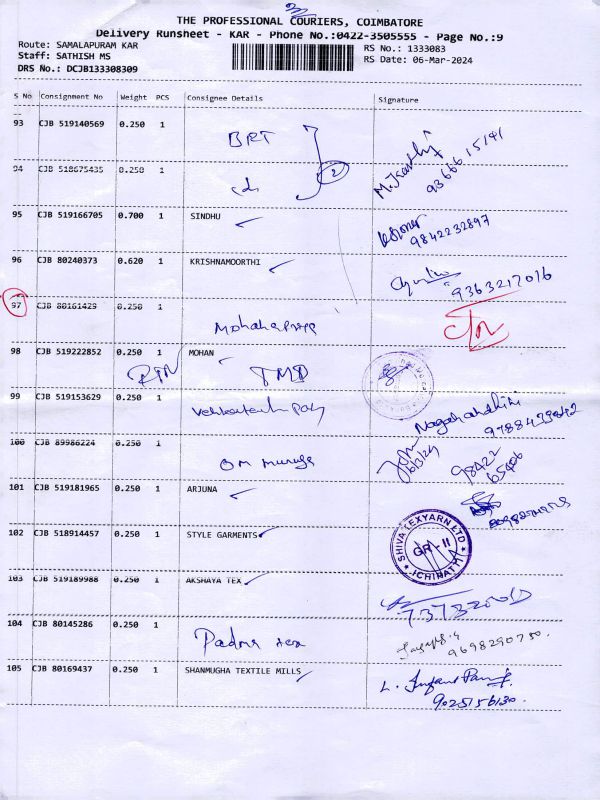 THE PROFESSIONAL COURIERS, COIMBATORE
Delivery Runsheet - KAR - Phone No.:0422-3505555 - Page No.:9
Route: SAMALAPURAM KAR
RS No.: 1333083
Staff: SATHISH MS
RS Date: 06-Mar-2024
DRS No.: DCJB133308309
S No Consignment No Weight PCS Consignee Details Signature
93 CJB 519140569 0.250 1 BRT
2
94 CJB 518675435 0.250 1
93666 15141
95 CJB 519166705 0.700 1 SINDHU
9842232897
96 CJB 80240373 0.620 1 KRISHNAMOORTHI
9363217016
97 CJB 80161429 0.250 1
98 CJB 519222852 0.250 1 MOHAN
RTN TMD
99 CJB 519153629 0.250 1
100 CJB 89986224 0.250 1 OM muruga
98422
101 CJB 519181965 0.250 1 ARJUNA
102 CJB 518914457 0.250 1 STYLE GARMENTS
SHIVA TEXYARN LTD
GR - II
103 CJB 519189988 0.250 1 AKSHAYA TEX
104 CJB 80145286 0.250 1 Padma tex
9698290750
105 CJB 80169437 0.250 1 SHANMUGHA TEXTILE MILLS
9025156130